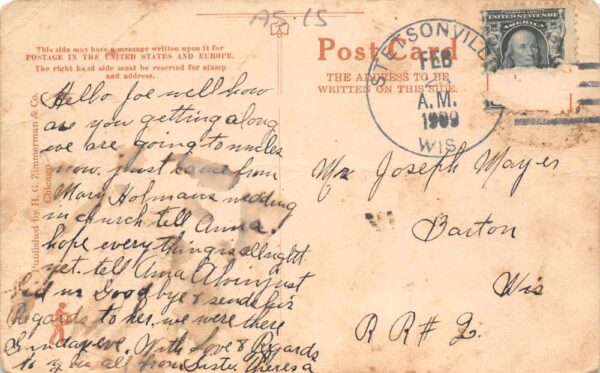 AS 15
This side may have a message written upon it for
POSTAGE IN THE UNITED STATES AND EUROPE.
The right hand side must be reserved for stamp
and address.
Published by H. G. Zimmerman & Co.
Chicago
Hello Joe well how
are you getting along
we are going to uncles
now. just came from
Mary Holmans wedding
in church tell Anna.
hope everything is allright
yet. tell Anna Alvin just
bid us Good bye & sends his
Regards to her. we were there
Sunday eve. With Love & Regards
to you all from Sister Theresa
Post Card
THE ADDRESS TO BE
WRITTEN ON THIS SIDE.
STETSONVILLE
FEB
A.M.
1909
WIS.
UNITED STATES OF
AMERICA
Mr. Joseph Mayer
Barton
Wis
R R # 2.